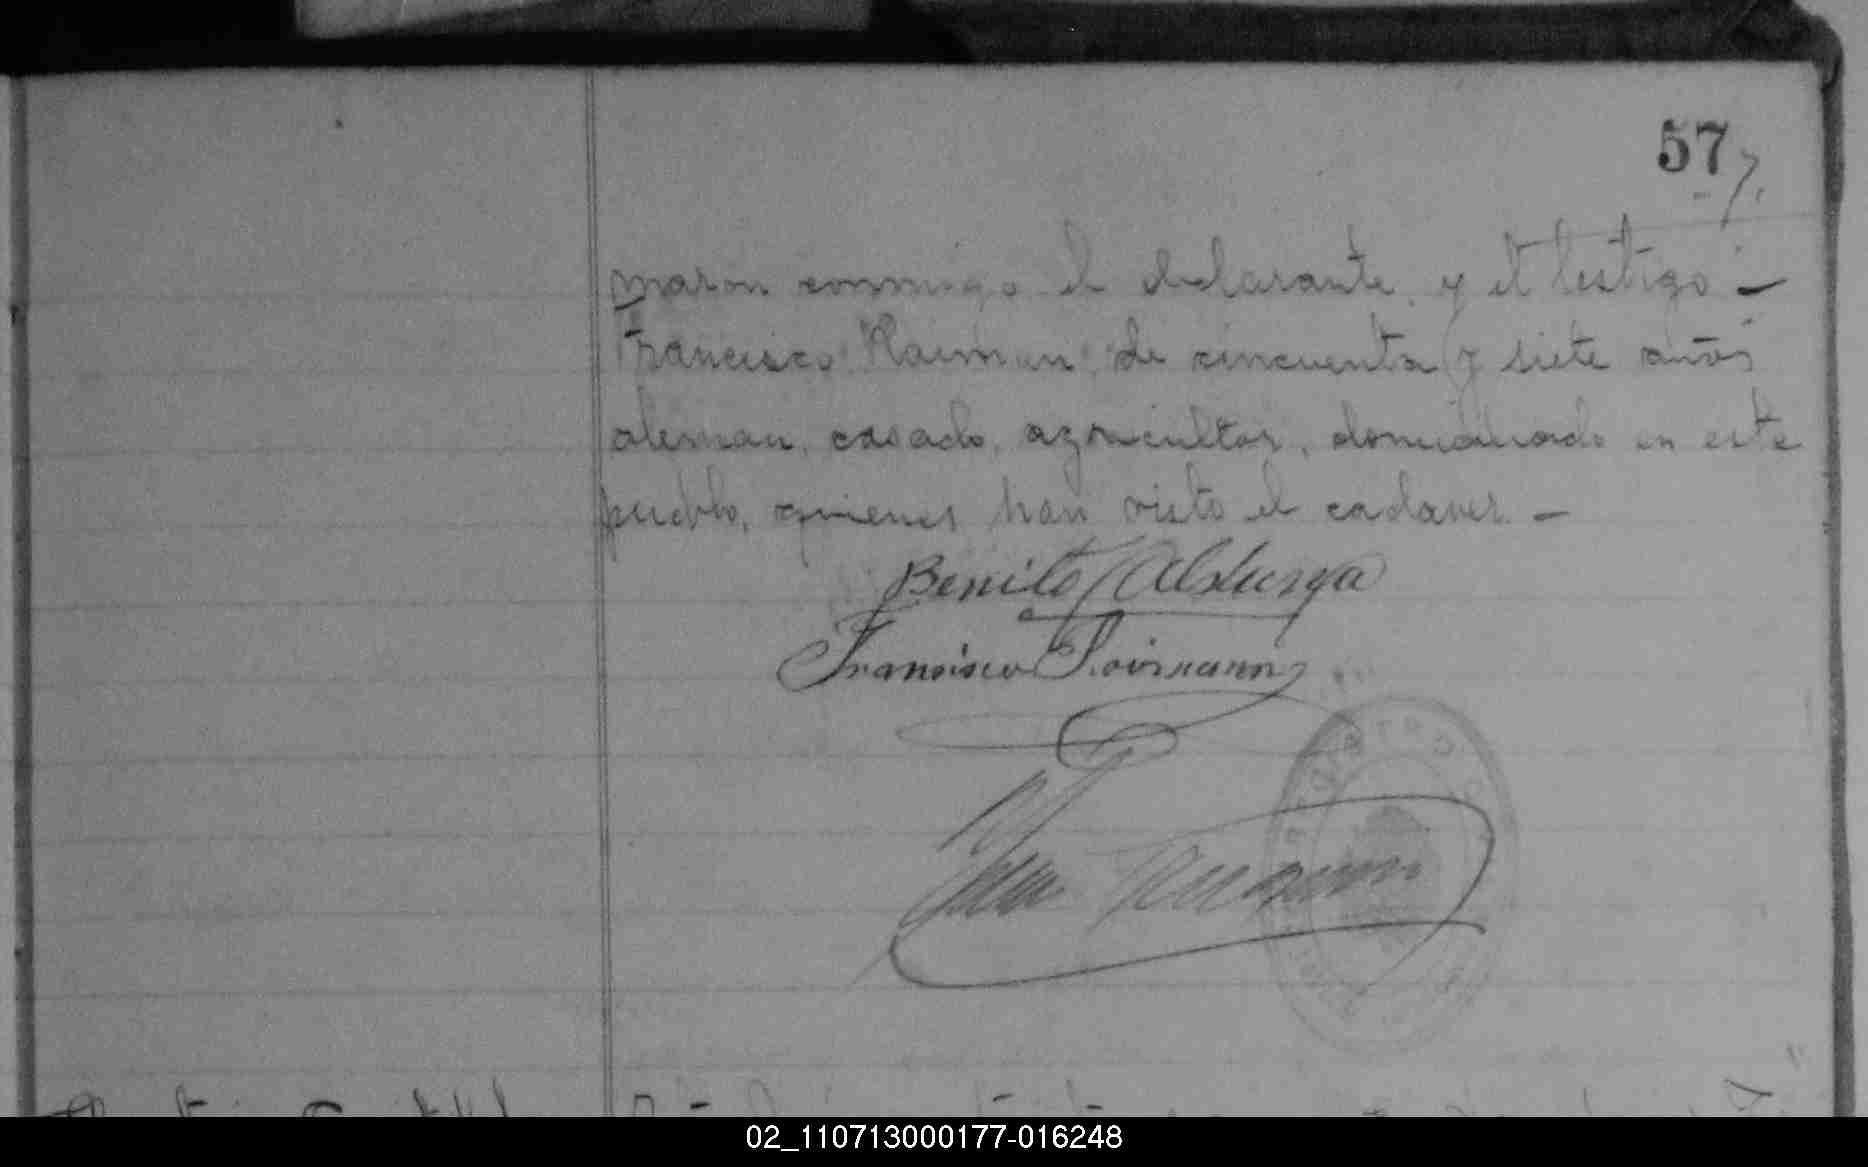 57
7.
maron conmigo el declarante y el testigo –
Francisco Raiman de cincuenta y siete años
aleman, casado, agricultor, domiciliado en este
pueblo, quienes han visto el cadaver. –
Benito
Francisco
02_110713000177-016248